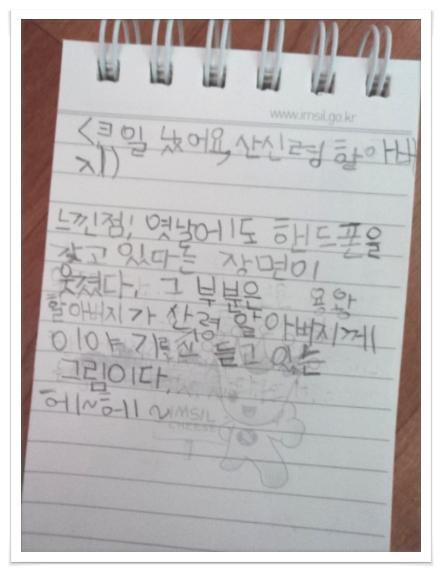 www.imsil.go.kr
<큰일 났어요, 산신령 할아버
지!>
느낀점! 옛날에도 핸드폰을
갖고 있다는 장면이
웃겼다. 그 부분은 용왕
할아버지가 산령 할아버지께
이야기를 듣고 있는
그림이다.
헤~헤~
IMSIL
CHEESE